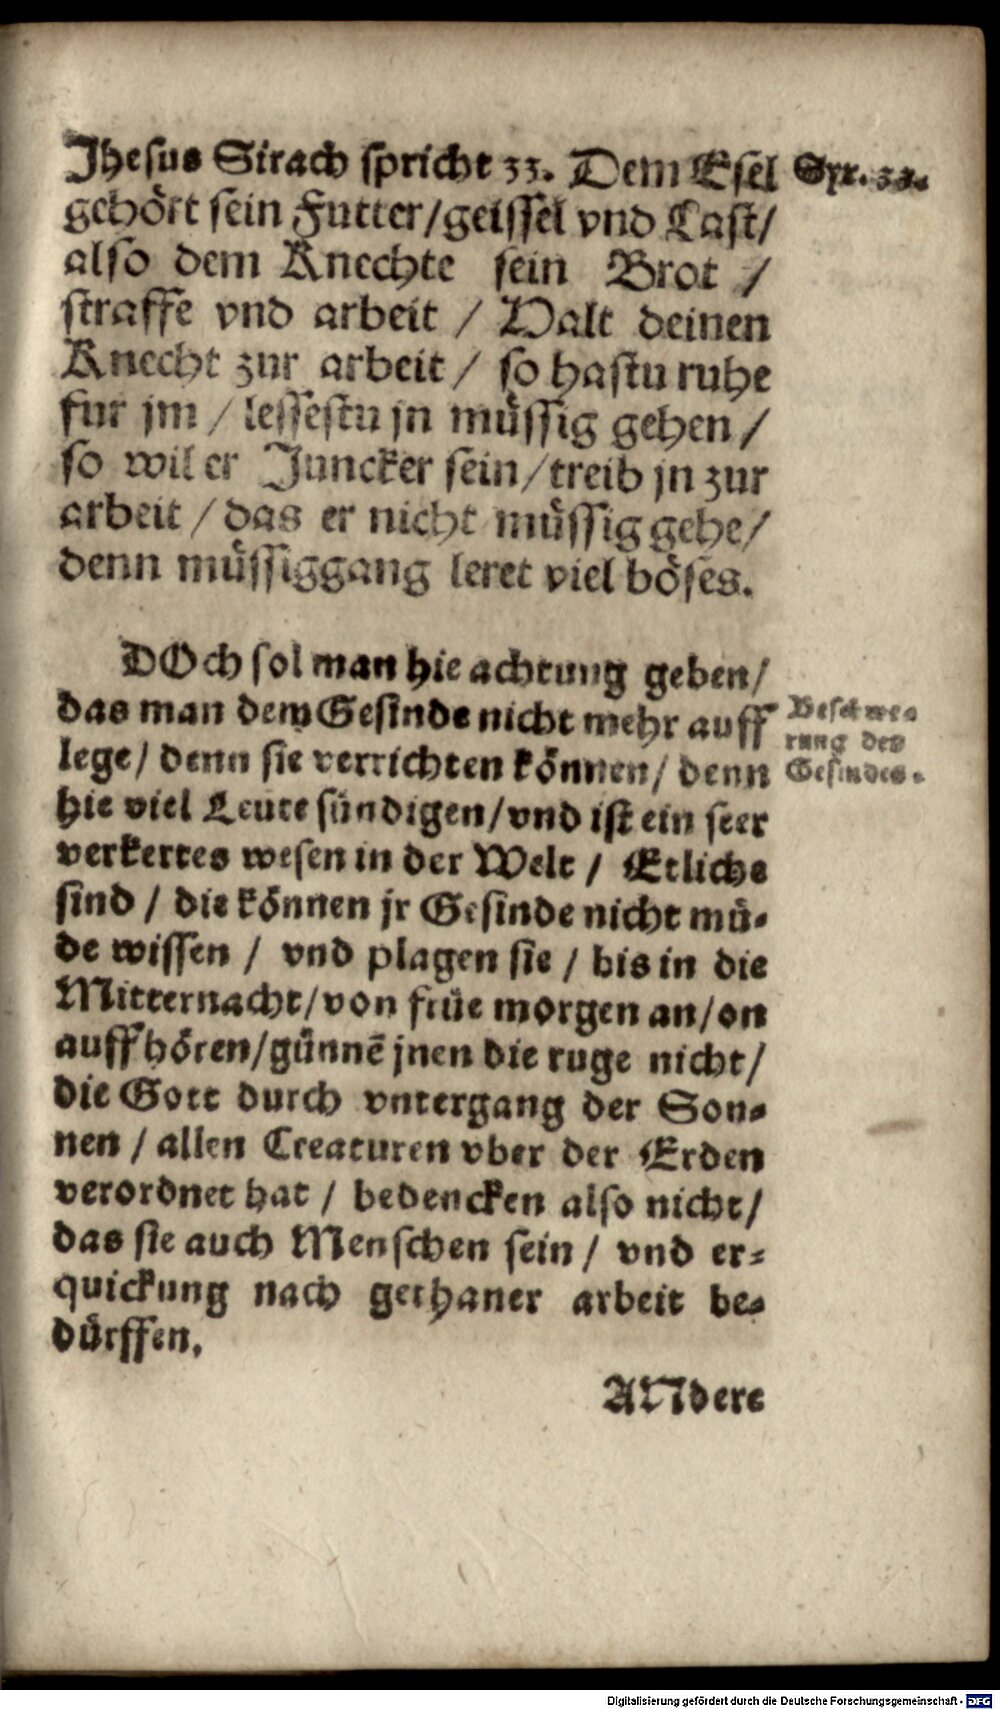 Jhesus Sirach spricht 33. Dem Esel
Syr. 33.
gehört sein Futter/geissel vnd Last/
also dem Knechte sein Brot /
straffe vnd arbeit / Halt deinen
Knecht zur arbeit / so hastu ruhe
fur jm / lessestu jn müssig gehen /
so wil er Juncker sein/treib jn zur
arbeit / das er nicht müssig gehe/
denn müssiggang leret viel böses.
DOch sol man hie achtung geben/
das man dem Gesinde nicht mehr auff
lege/ denn sie verrichten können/ denn
hie viel Leute sündigen/vnd ist ein seer
verkertes wesen in der Welt / Etliche
sind / die können jr Gesinde nicht mü-
de wissen / vnd plagen sie / bis in die
Mitternacht/von früe morgen an/on
auffhören/günnē jnen die ruge nicht/
die Gott durch vntergang der Son-
nen / allen Creaturen vber der Erden
verordnet hat / bedencken also nicht/
das sie auch Menschen sein / vnd er-
quickung nach gethaner arbeit be-
dürffen.
Beschwe-
rung des
Gesindes.
ANdere
Digitalisierung gefördert durch die Deutsche Forschungsgemeinschaft - DFG